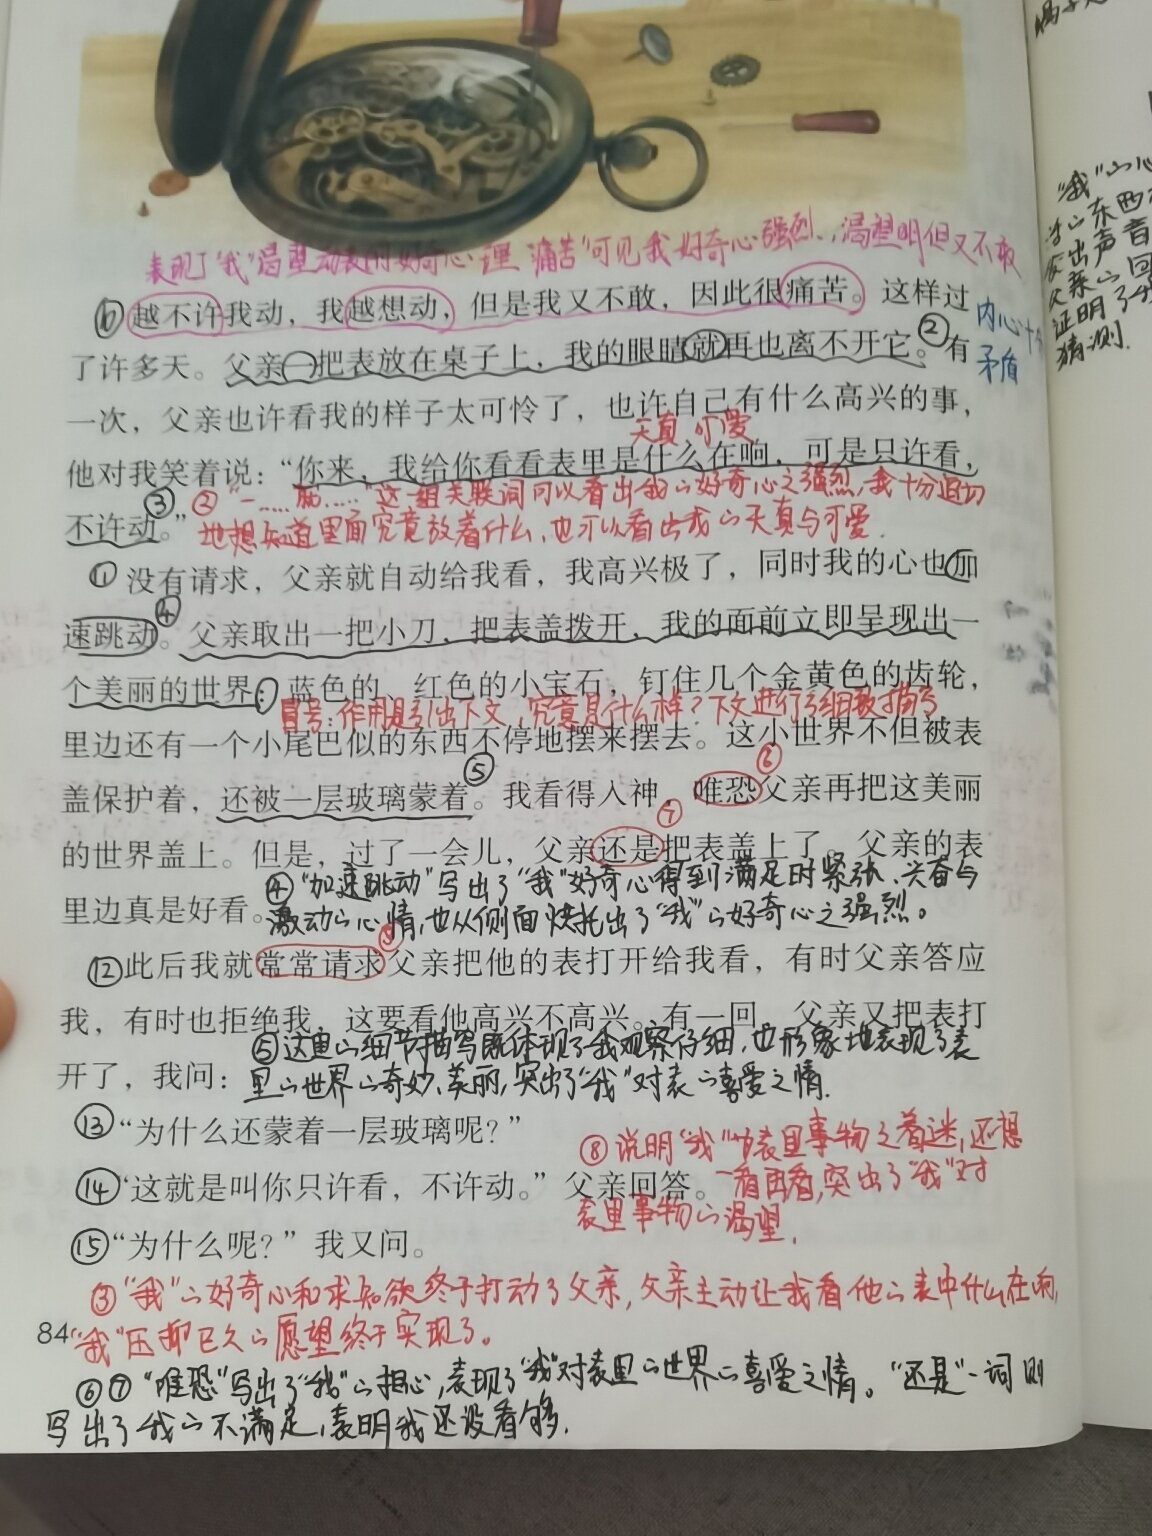 表现了“我”渴望动表的好奇心理 痛苦”可见我好奇心强烈,渴望明但又不敢
⑩越不许我动，我越想动，但是我又不敢，因此很痛苦。这样过
内心十分
矛盾
了许多天。父亲一把表放在桌子上，我的眼睛就再也离不开它。②有
一次，父亲也许看我的样子太可怜了，也许自己有什么高兴的事，
天真 可爱
他对我笑着说：“你来，我给你看看表里是什么在响，可是只许看，
不许动。”③
②“一……就……”这一组关联词可以看出我的好奇心之强烈,我十分迫切
地想知道里面究竟放着什么,也可以看出我的天真与可爱.
⑪没有请求，父亲就自动给我看，我高兴极了，同时我的心也加
速跳动。④父亲取出一把小刀，把表盖拨开，我的面前立即呈现出一
个美丽的世界：蓝色的、红色的小宝石，钉住几个金黄色的齿轮，
冒号:作用是引出下文,究竟是什么样?下文进行了细致描写
里边还有一个小尾巴似的东西不停地摆来摆去。这小世界不但被表
盖保护着，还被一层玻璃蒙着。⑤我看得入神，唯恐⑥父亲再把这美丽
的世界盖上。但是，过了一会儿，父亲还是⑦把表盖上了。父亲的表
里边真是好看。
④“加速跳动”写出了“我”好奇心得到满足时紧张、兴奋与
激动的心情,也从侧面烘托出了“我”的好奇心之强烈。
⑫此后我就常常请求⑧父亲把他的表打开给我看，有时父亲答应
我，有时也拒绝我，这要看他高兴不高兴。有一回，父亲又把表打
开了，我问：
⑤这里的细节描写既体现了我观察仔细,也形象地表现了表
里的世界的奇妙、美丽,突出了“我”对表的喜爱之情.
⑬“为什么还蒙着一层玻璃呢？”
⑭“这就是叫你只许看，不许动。”父亲回答。
⑮“为什么呢？”我又问。
⑧说明“我”对表里事物之着迷,还想
一看再看,突出了“我”对
表里事物的渴望.
③“我”的好奇心和求知欲终于打动了父亲,父亲主动让我看他的表中什么在响,
“我”压抑已久的愿望终于实现了。
84
⑥⑦“唯恐”写出了“我”的担心,表现了“我”对表里的世界的喜爱之情。“还是”一词则
写出了我的不满足,表明我还没看够.
“我”的心
的东西
发出声音
父亲的回
证明了我
猜测.